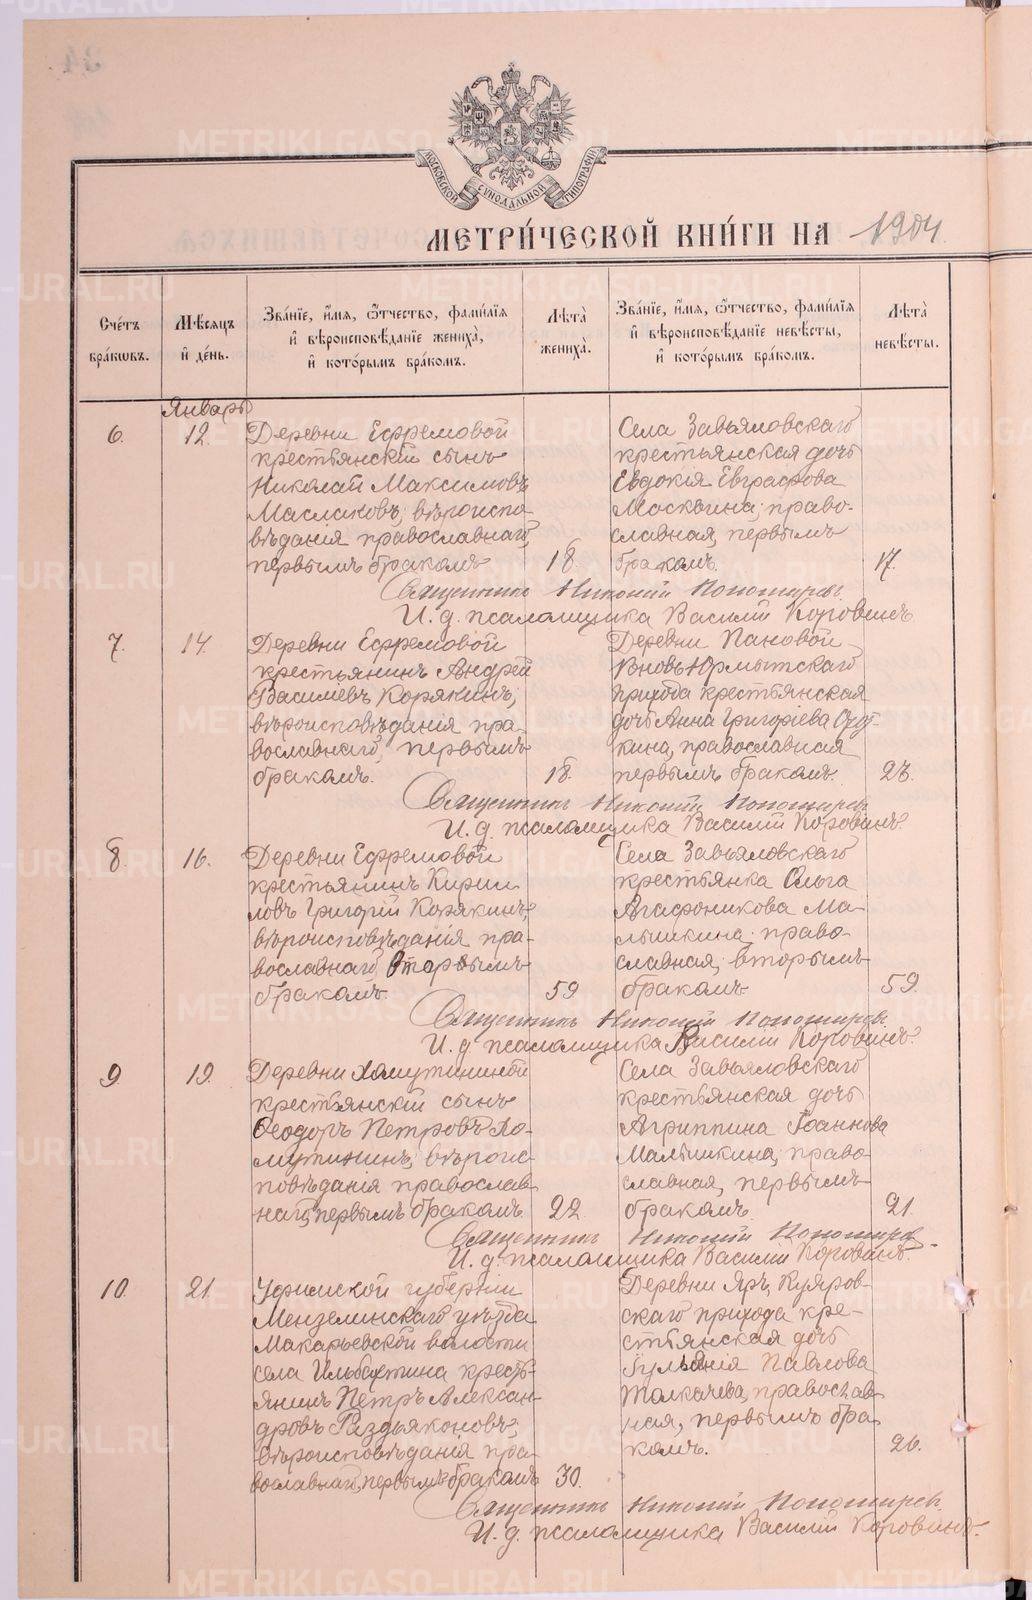 МОСКОВСКОЙ СѴНОДАЛЬНОЙ ТИПОГРАФІИ
МЕТРИ́ЧЕСКОЙ КНИ́ГИ НА 1904.
Сче́тъ бра́ковъ.
Мѣ́сяцъ и҆ де́нь.
Зва́нїе, и҆́мя, ѻ҆́тчество, фами́лїя
и҆ вѣроисповѣ́данїе жениха̀,
и҆ кото́рымъ бра́комъ.
Лѣ́та жениха̀.
Зва́нїе, и҆́мя, ѻ҆́тчество, фами́лїя
и҆ вѣроисповѣ́данїе невѣ́сты,
и҆ кото́рымъ бра́комъ.
Лѣ́та невѣ́сты.
Январь
6. 12.
Деревни Ефремовой
крестьянскій сынъ
Николай Максимовъ
Маслаковъ, вѣроиспо-
вѣданія православнаго,
первымъ бракомъ
18.
Села Завьяловскаго
крестьянская дочь
Евдокія Евграфова
Москвина, право-
славная, первымъ
бракомъ.
17.
Священникъ Никоній Пономаревъ.
И. д. псаломщика Василій Коровинъ.
7. 14.
Деревни Ефремовой
крестьянинъ Андрей
Васильевъ Корякинъ,
вѣроисповѣданія пра-
вославнаго, первымъ
бракомъ.
18.
Деревни Пановой
Вновь-Юрмытскаго
прихода крестьянская
дочь Анна Григоріева
кина, православная
первымъ бракомъ.
23.
Священникъ Никоній Пономаревъ
И. д. псаломщика Василій Коровинъ.
8 16.
Деревни Ефремовой
крестьянинъ Кирил
ловъ Григорій Корякинъ,
вѣроисповѣданія пра-
вославнаго, вторымъ
бракомъ.
59
Села Завьяловскаго
крестьянка Ольга
Агафоникова Ма-
лышкина, право-
славная, вторымъ
бракомъ
59.
Священникъ Никоній Пономаревъ.
И. д. псаломщика Василій Коровинъ.
9 19.
Деревни Хомутининой
крестьянскій сынъ
Ѳеодоръ Петровъ Хо-
мутининъ, вѣроис-
повѣданія православ-
наго, первымъ бракомъ
22
Села Завьяловскаго
крестьянская дочь
Агриппина Іоаннова
Малышкина, право-
славная, первымъ
бракомъ.
21.
Священникъ Никоній Пономаревъ
И. д. псаломщика Василій Коровинъ.
10. 21.
Уфимской губерніи
Мензелинскаго уѣзда
Макарьевской волости
села Ильбахтина кресть-
янинъ Петръ Алексан-
дровъ Раздьяконовъ,
вѣроисповѣданія пра-
вославнаго, первымъ бракомъ
30.
Деревни Яръ, Куяров-
скаго прихода кре-
стьянская дочь
Іульянія Павлова
Толкачева, православ-
ная, первымъ бра-
комъ.
26.
Священникъ Никоній Пономаревъ.
И. д. псаломщика Василій Коровинъ.
METRIKI.GASO-URAL.RU